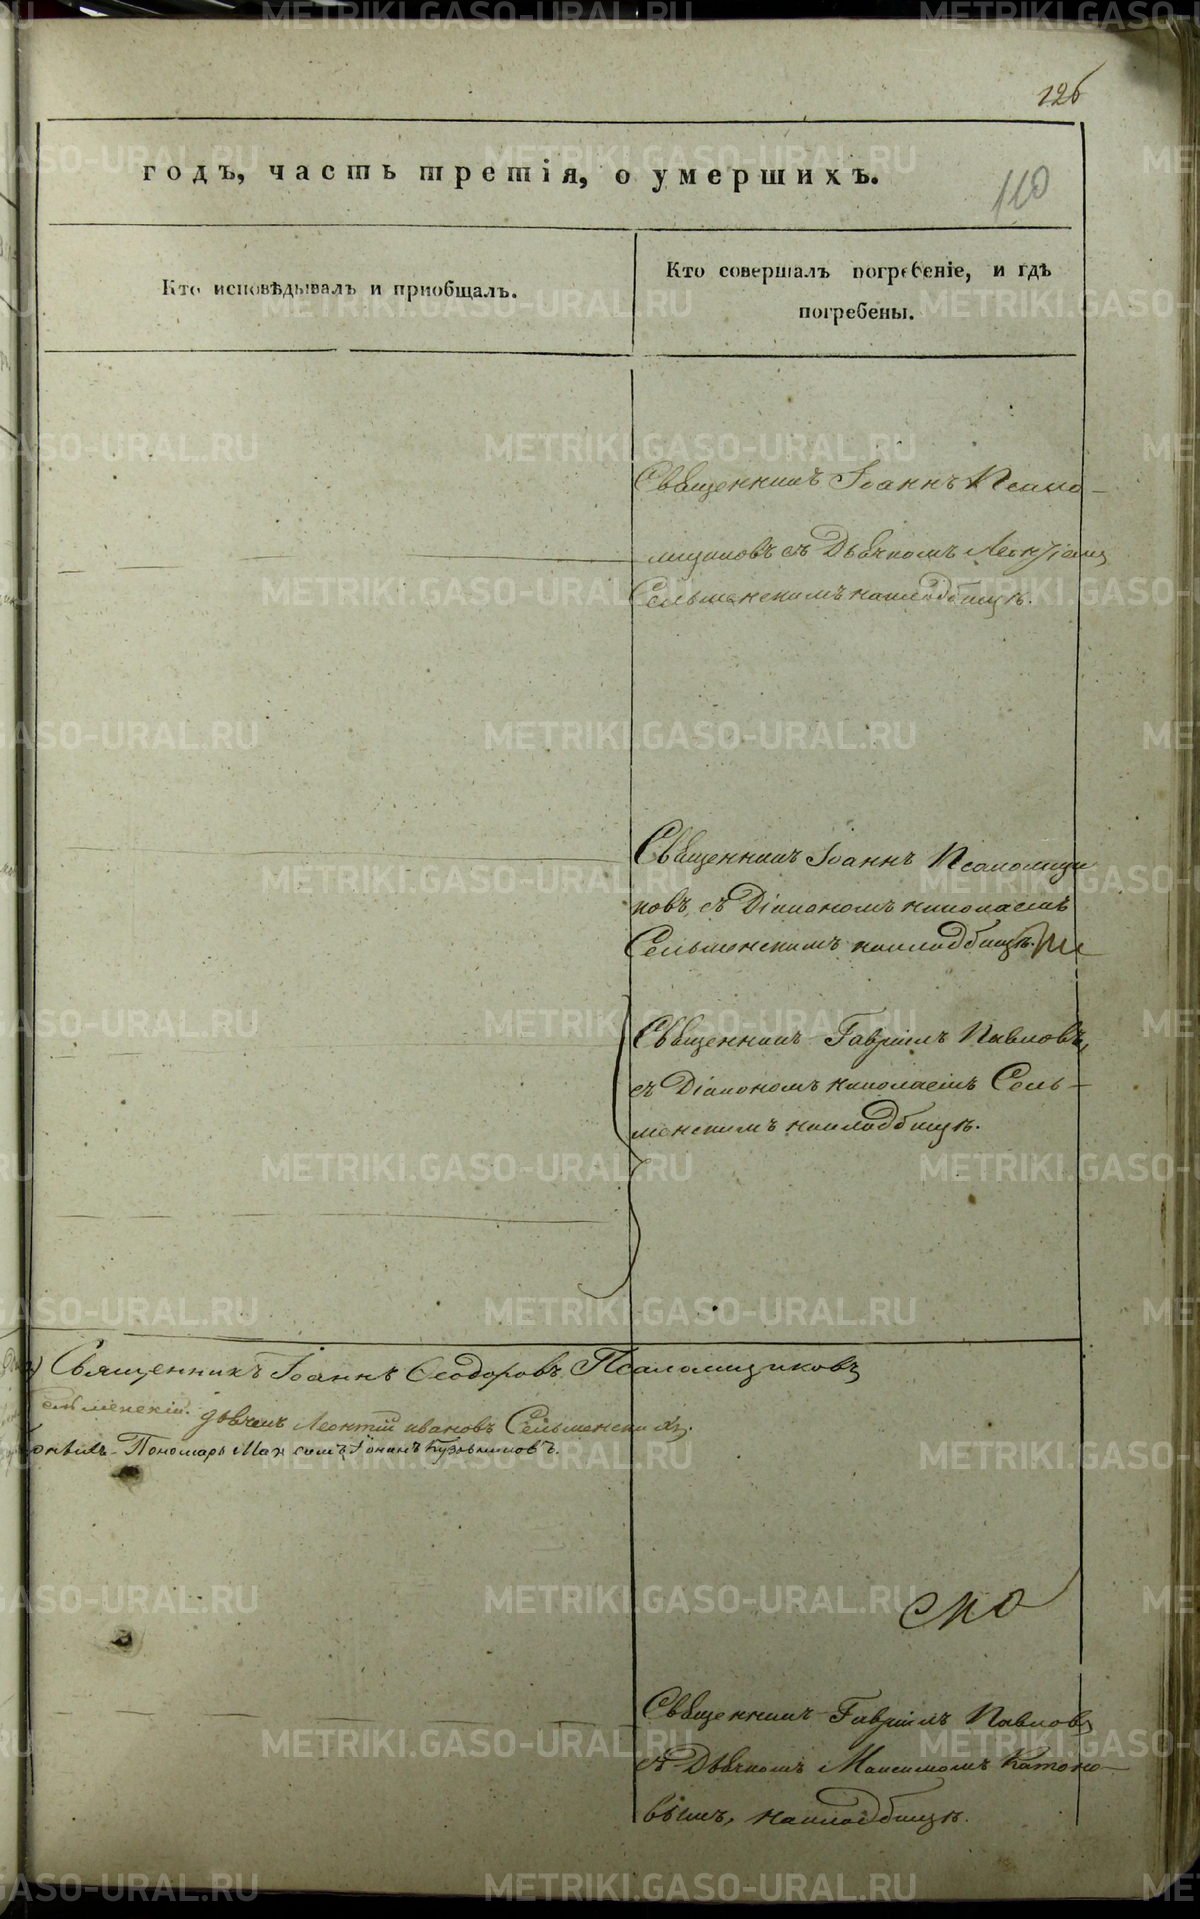 126
годъ, часть третія, о умершихъ.
110
Кто исповѣдывалъ и приобщалъ.
Кто совершалъ погребеніе, и гдѣ
погребены.
Священникъ Іоаннъ Псало-
мщиковъ съ Дьячкомъ Леонтіемъ
Сельменскимъ на кладбищѣ.
Священникъ Іоаннъ Псаломщи
ковъ, съ Діакономъ Николаемъ
Сельменскимъ на кладбищѣ.
Священникъ Гавріилъ Павловъ,
съ Діакономъ Николаемъ Сель-
менскимъ на кладбищѣ.
Священникъ Іоаннъ Ѳеодоровъ Псаломщиковъ
дьячекъ Леонтій Ивановъ Сельменскій.
Пономарь Максимъ
Священникъ Гавріилъ Павловъ
съ Дьячкомъ Максимомъ Катоно-
вымъ, на кладбищѣ.
METRIKI.GASO-URAL.RU